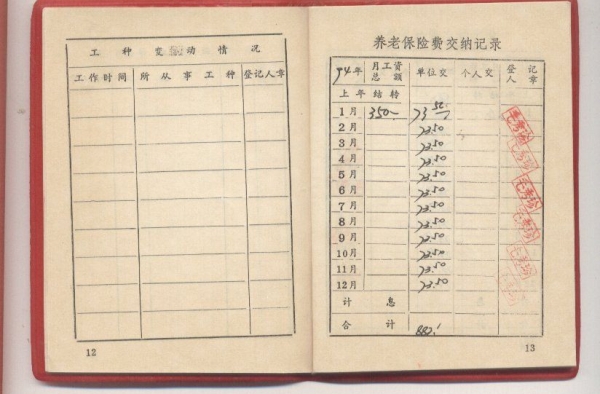 工种变动情况
工作时间 所从事工种 登记人章
12
养老保险费交纳记录
94年 月工资总额 单位交 个人交 登记人章
上年结转
1月 350 73.50
2月 73.50
3月 73.50
4月 73.50
5月 73.50
6月 73.50
7月 73.50
8月 73.50
9月 73.50
10月 73.50
11月 73.50
12月 73.50
计息
合计 882.
13